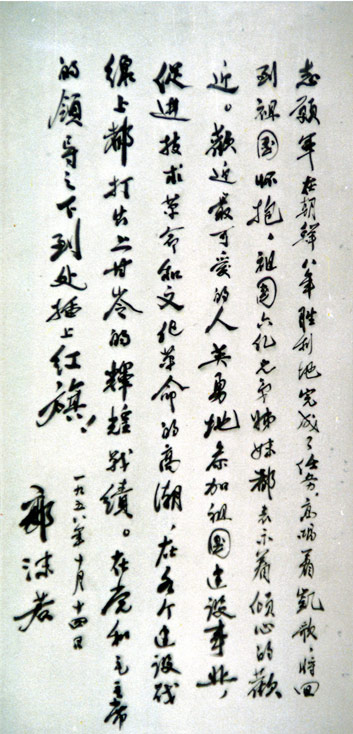 志愿军在朝鲜八年胜利地完成了任务，高唱着凯歌，将回
到祖国怀抱。祖国六亿兄弟姊妹都表示着倾心的欢
迎。欢迎最可爱的人英勇地参加祖国建设事业，
促进技术革命和文化革命的高潮，在各个建设战
线上都打出上甘岭的辉煌战绩。在党和毛主席
的领导之下到处插上红旗！
一九五八年十月十四日
郭沫若